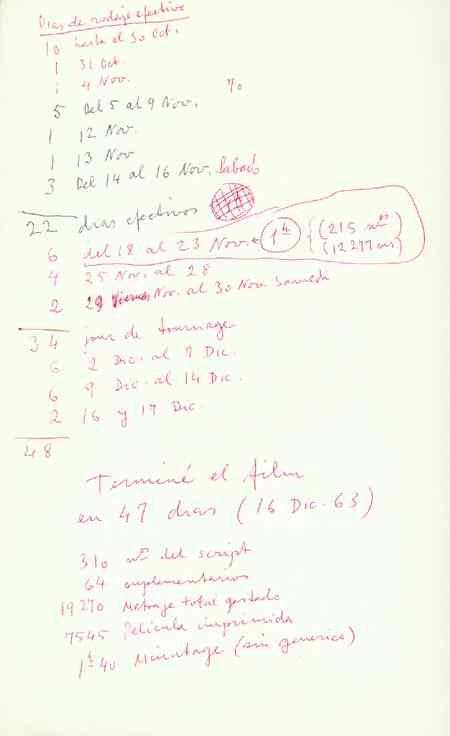 Dias de rodaje efectivo
10 hasta el 30 Oct.
1 31 Oct.
1 4 Nov.
5 Del 5 al 9 Nov. 70
1 12 Nov.
1 13 Nov
3 Del 14 al 16 Nov. Sabado
22 dias efectivos
6 del 18 al 23 Nov. 1h (215 nos)
(12277 ms)
4 25 Nov. al 28
2 29 Nov. al 30 Nov Samedi
34 jour de tournage
6 2 Dic. al 7 Dic.
6 9 Dic. al 14 Dic.
2 16 y 17 Dic.
48
Terminé el film
en 47 dias (16 Dic. 63)
310 nos del script
64 suplementarios
19270 Metraje total gastado
7545 Pelicula imprimida
1h 40 Minutage (sin generico)